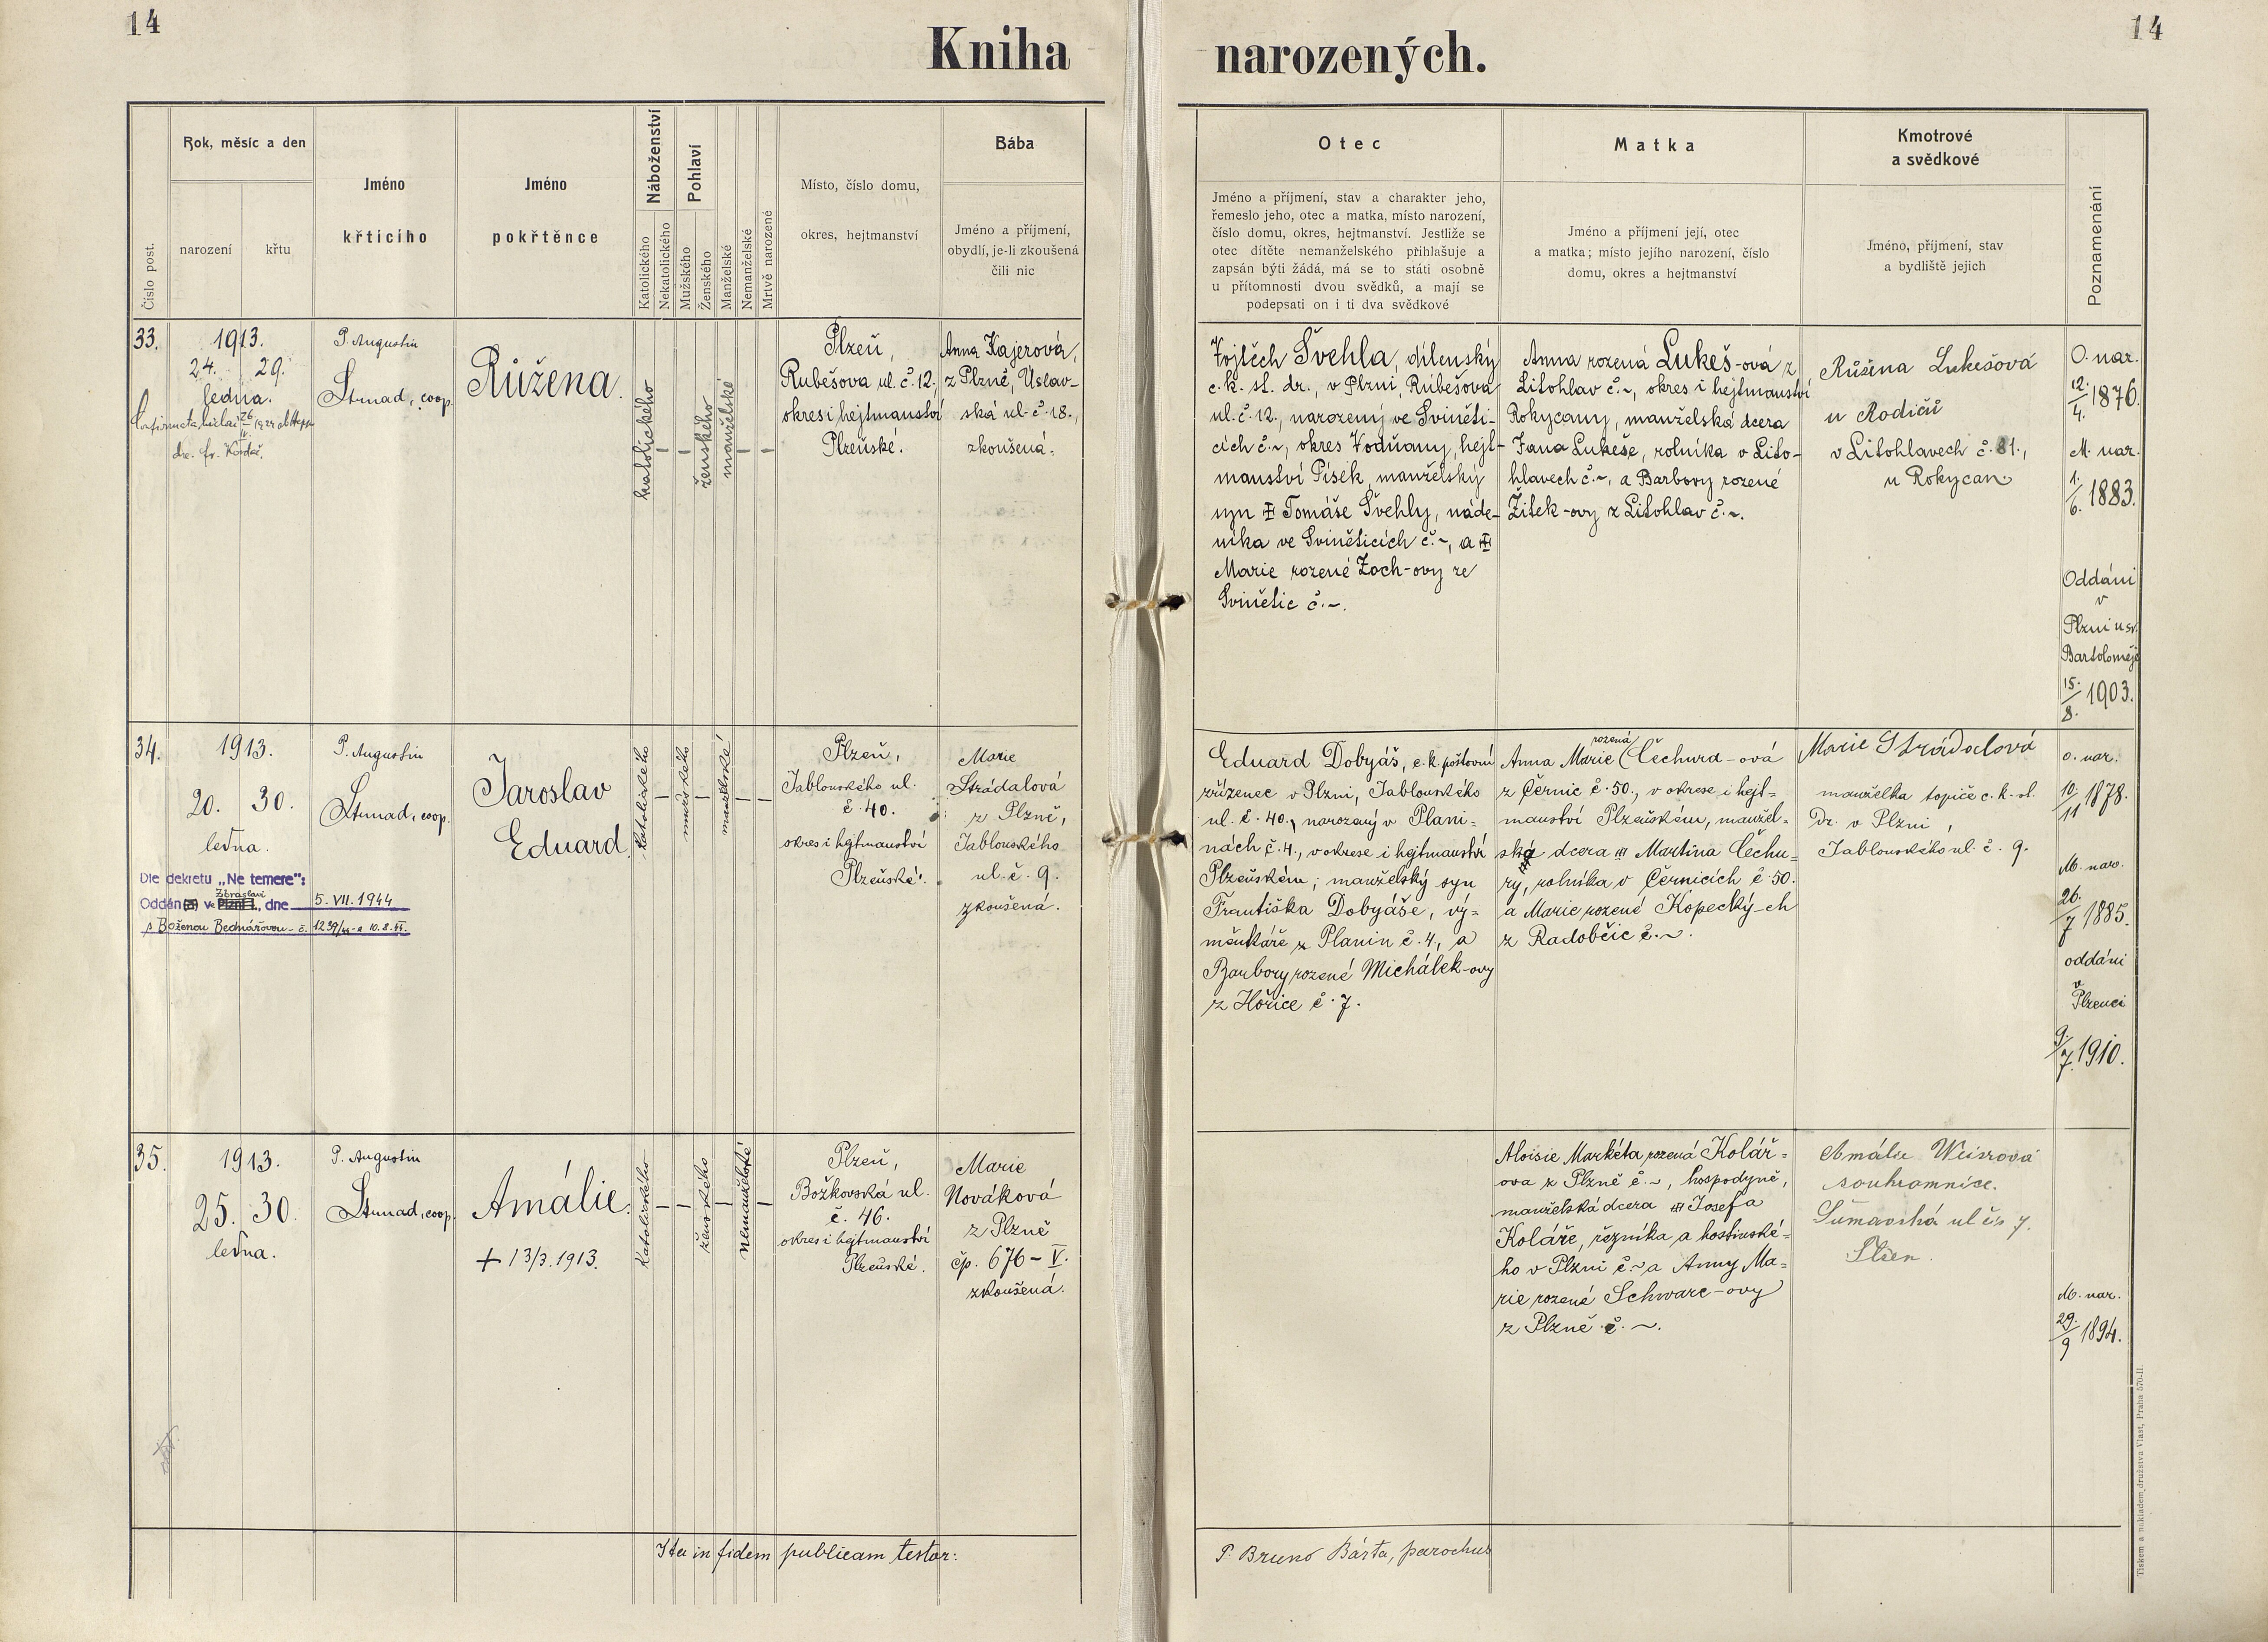 14
14
Kniha
narozených.
Číslo post.
Rok, měsíc a den
narození
křtu
Jméno
křticího
Jméno
pokřtěnce
Náboženství
Katolického
Nekatolického
Pohlaví
Mužského
Ženského
Manželské
Nemanželské
Mrtvě narozené
Místo, číslo domu,
okres, hejtmanství
Bába
Jméno a příjmení,
obydlí, je-li zkoušená
čili nic
Otec
Jméno a příjmení, stav a charakter jeho,
řemeslo jeho, otec a matka, místo narození,
číslo domu, okres, hejtmanství. Jestliže se
otec dítěte nemanželského přihlašuje a
zapsán býti žádá, má se to státi osobně
u přítomnosti dvou svědků, a mají se
podepsati on i ti dva svědkové
Matka
Jméno a příjmení její, otec
a matka; místo jejího narození, číslo
domu, okres a hejtmanství
Kmotrové
a svědkové
Jméno, příjmení, stav
a bydliště jejich
Poznamenání
33.
1913.
24. 29.
ledna.
P. Augustin
Strnad, coop.
Růžena.
katolického
–
–
ženského
manželské
–
–
Plzeň,
Rubešova ul. č. 12,
okres i hejtmanství
Plzeňské.
Anna Kajerová,
z Plzně, Úslav-
ská ul. č. 18.,
zkoušená.
Vojtěch Švehla, dílenský
c. k. st. dr., v Plzni, Rubešova
ul. č. 12., narozený ve Sviněti-
cích č. ~, okres Vodňany, hejt-
manství Písek, manželský
syn Tomáše Švehly, náde-
níka ve Sviněticích č. ~, a
Marie rozené Zoch-ovy ze
Svinětic č. ~.
Anna rozená Lukeš-ová z
Litohlav č. ~, okres i hejtmanství
Rokycany, manželská dcera
Jana Lukeše, rolníka v Lito-
hlavech č. ~, a Barbory rozené
Žitek-ovy z Litohlav č. ~.
Růžena Lukešová
u Rodičů
v Litohlavech č. 81.,
u Rokycan
O. nar.
12./4. 1876.
M. nar.
1./6. 1883.
Oddáni
v
Plzni u sv.
Bartoloměje
15./8. 1903.
34.
1913.
20. 30.
ledna.
Dle dekretu „Ne temere":
Oddán ve Zbraslavi, dne 5. VII. 1944
s Boženou Bednářovou - č. 1239/44
P. Augustin
Strnad, coop.
Jaroslav
Eduard.
katolického
–
mužského
–
manželské
–
–
Plzeň,
Jablonského ul.
č. 40.
okres i hejtmanství
Plzeňské.
Marie
Strádalová
z Plzně,
Jablonského
ul. č. 9.
zkoušená.
Eduard Dobyáš, c. k. poštovní
zřízenec v Plzni, Jablonského
ul. č. 40., narozený v Plani-
nách č. 4., v okrese i hejtmanství
Plzeňském; manželský syn
Františka Dobyáše, vý-
měnkáře z Planin č. 4, a
Barbory rozené Michálek-ovy
z Hořice č. 7.
Anna Marie rozená Čechura-ová
z Černic č. 50., v okrese i hejt-
manství Plzeňském, manžel-
ská dcera Martina Čechu-
ry, rolníka v Černicích č. 50.
a Marie rozené Kopecký-ch
z Radobčic č. ~.
Marie Strádalová
manželka topiče c. k. st.
Dr. v Plzni,
Jablonského ul. č. 9.
O. nar.
10./11 1878.
M. nar.
26./7 1885.
oddáni
v
Plzenci
9./7. 1910.
35.
1913.
25. 30.
ledna.
P. Augustin
Strnad, coop.
Amálie.
+ 13/3. 1913.
katolického
–
–
ženského
–
nemanželské
–
Plzeň,
Božkovská ul.
č. 46.
okres i hejtmanství
Plzeňské.
Marie
Nováková
z Plzně
čp. 676 – V.
zkoušená.
Aloisie Markéta rozená Kolář-
ova z Plzně č. ~, hospodyně,
manželská dcera Josefa
Koláře, řezníka a hostinské-
ho v Plzni č. ~ a Anny Ma-
rie rozené Schwarc-ovy
z Plzně č. ~.
Amálie Weisrová
soukromnice.
Šumavská ul čís 7.
Plzen.
M. nar.
29./9 1894.
Ita in fidem publicam testor:
P. Bruno Bárta, parochus
Tiskem a nákladem družstva Vlast, Praha 570-II.